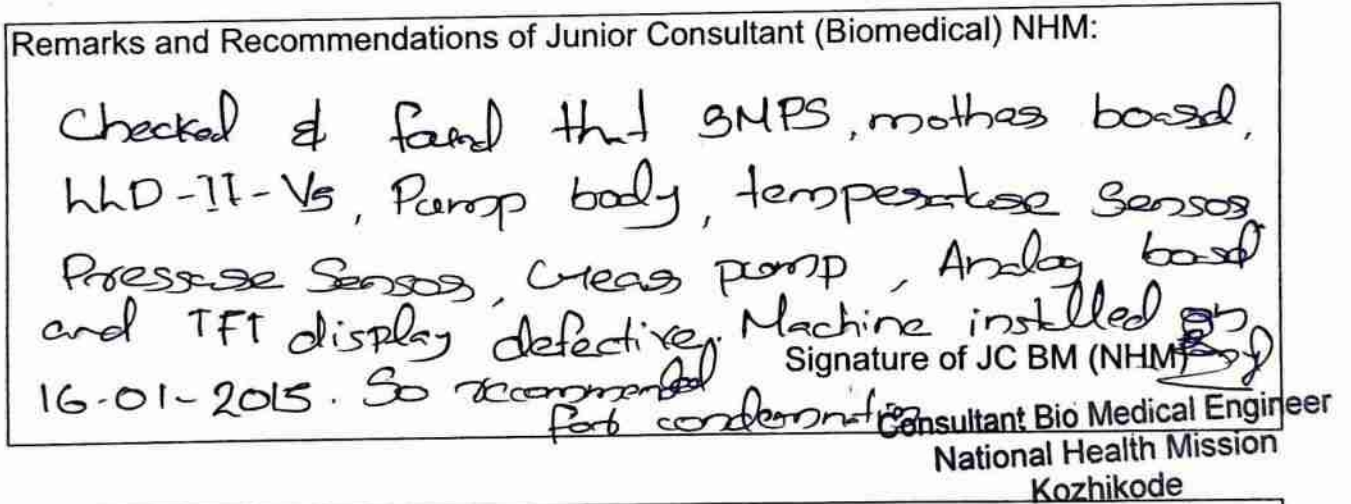 Remarks and Recommendations of Junior Consultant (Biomedical) NHM:
Checked & found that SMPS, mother board,
LLD-II-Vs, Pump body, temperature Sensor
Pressure Sensor, Gear pump, Analog board
and TFT display defective. Machine installed on
Signature of JC BM (NHM)
16-01-2015. So recommended
for condemnation
Consultant Bio Medical Engineer
National Health Mission
Kozhikode